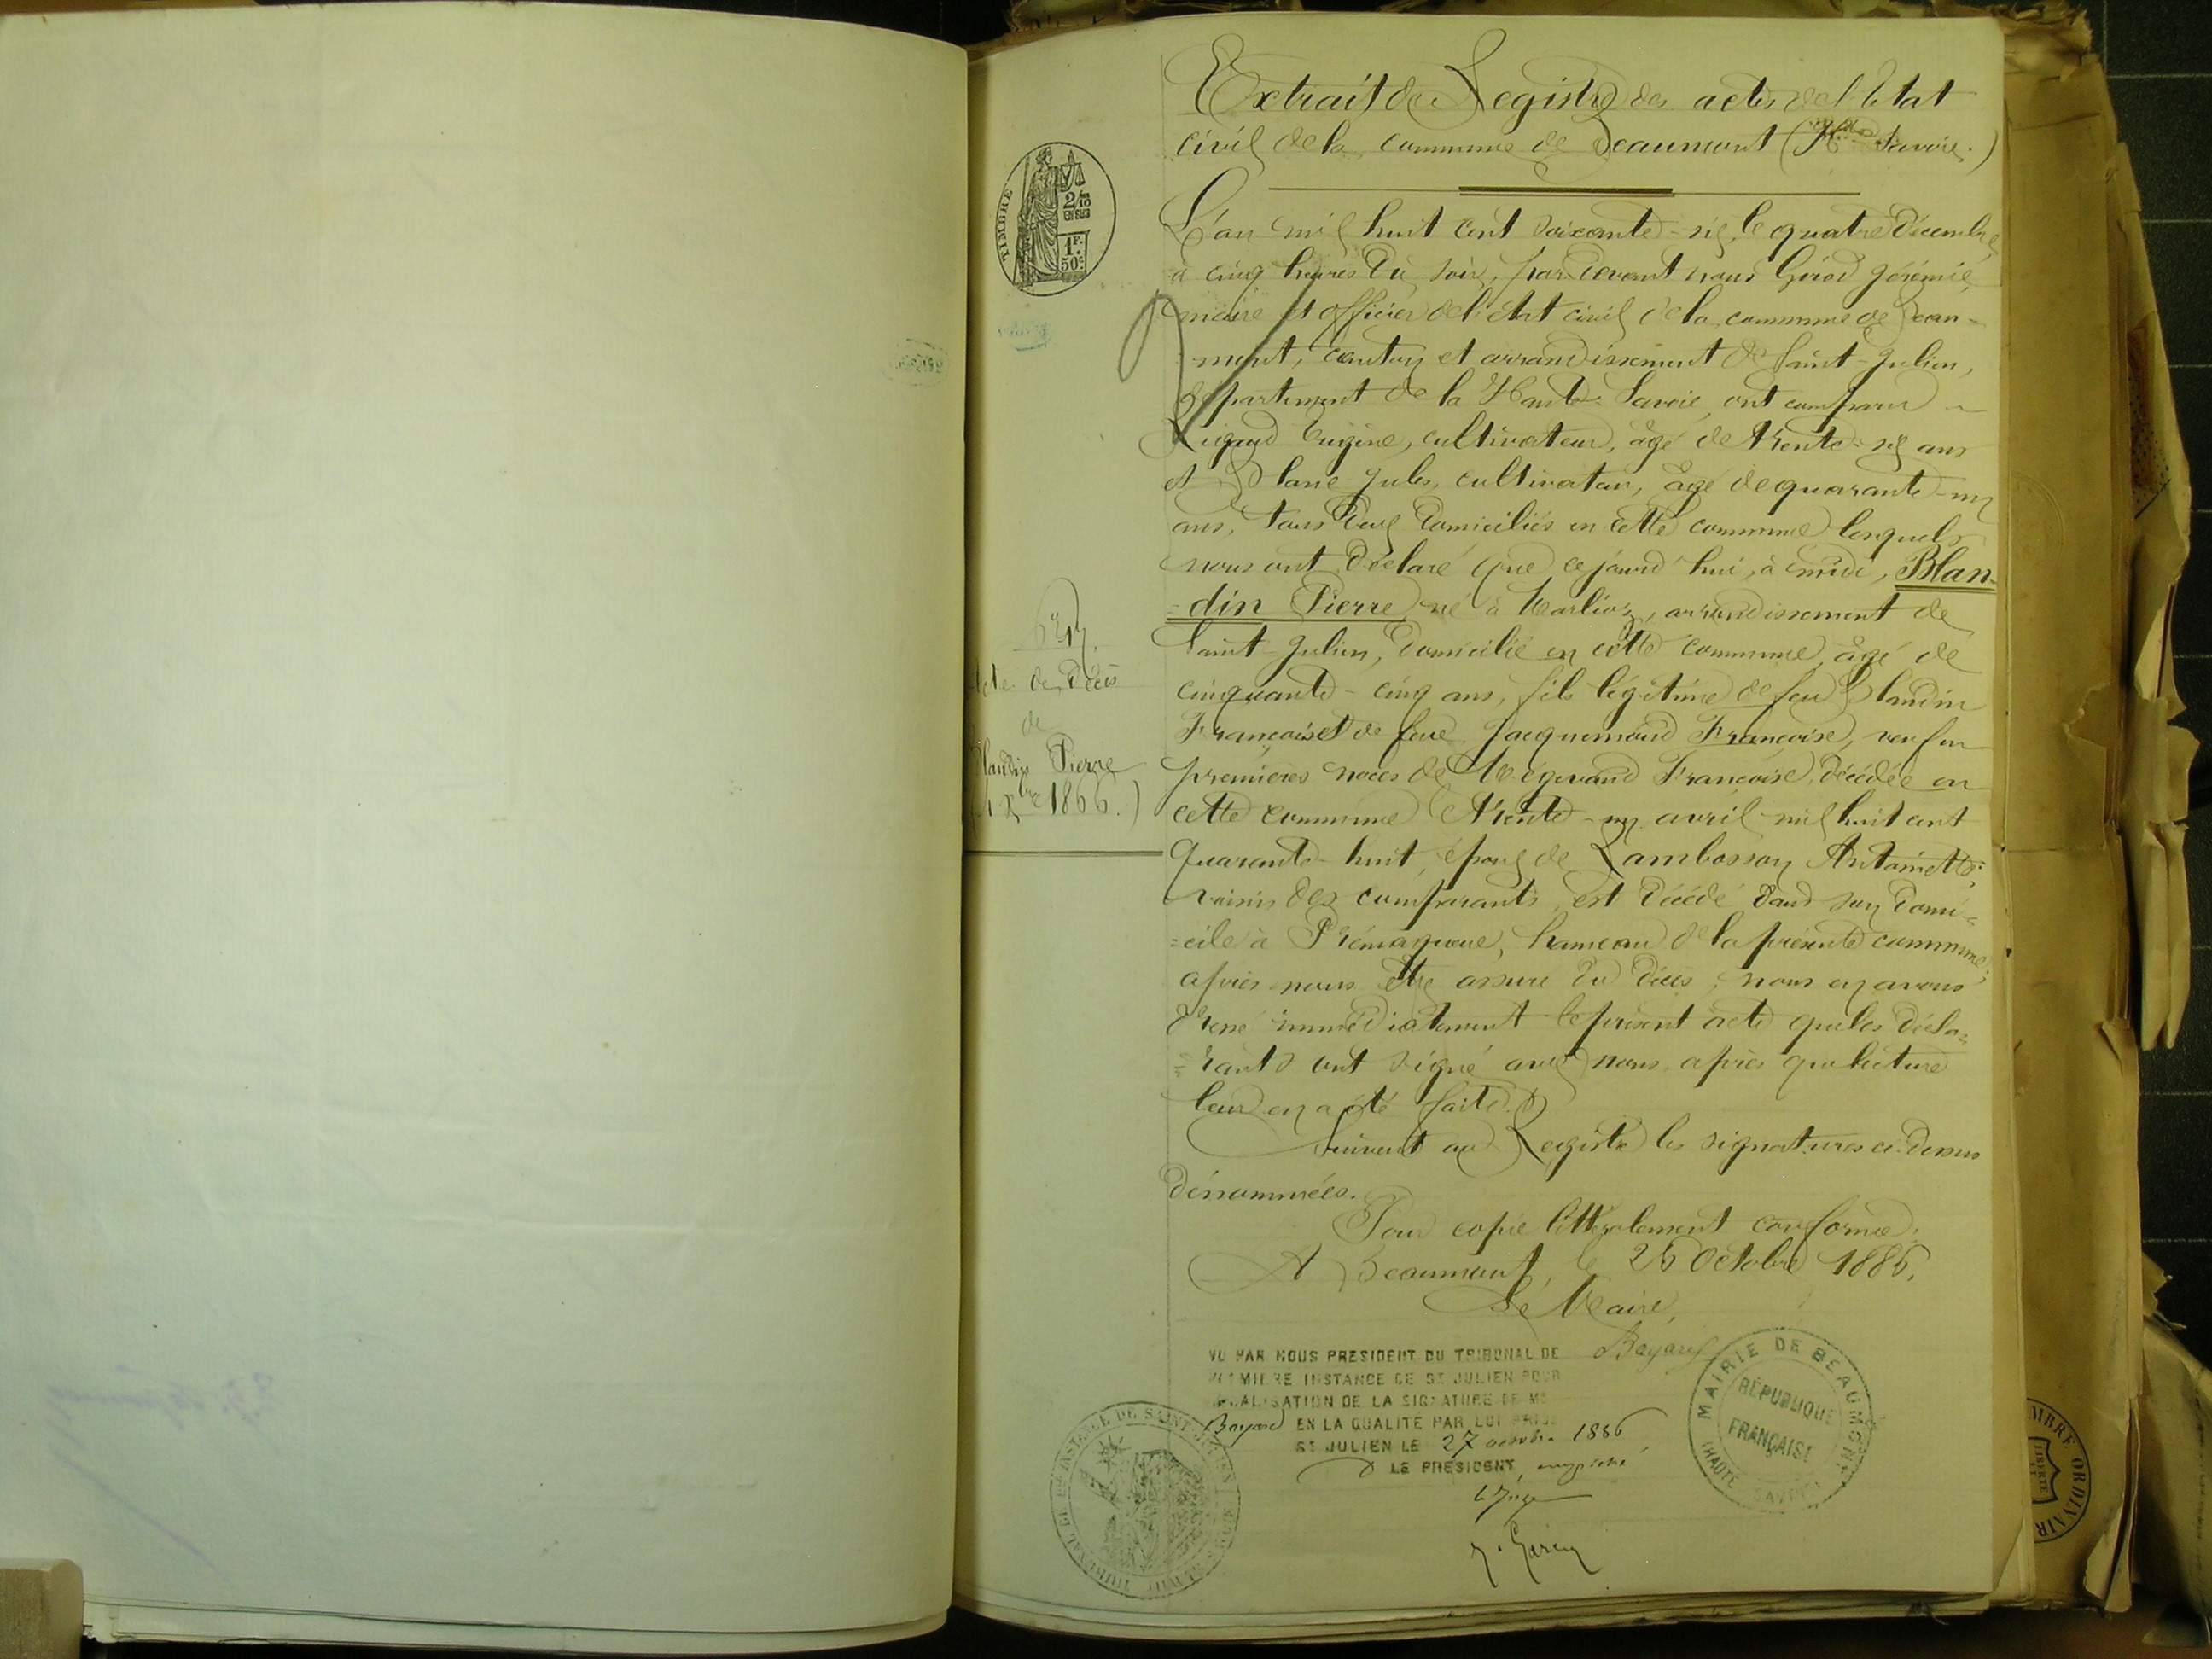 Extrait du Registre des actes de l'Etat
civil de la commune de Beaumont (Hte Savoie.)
TIMBRE
2/10
EN SUS
1F.
50c.
L'an mil huit cent soixante-six, le quatre décembre
à cinq heures du soir, par devant nous Girod Jérémie,
maire et officier de l'état civil de la commune de Beau-
-mont, canton et arrondissement de Saint-Julien,
département de la Haute-Savoie, ont comparu
Rigaud Eugène, cultivateur, âgé de trente-six ans
et Blanc Jules, cultivateur, âgé de quarante-un
ans, tous deux domiciliés en cette commune lesquels
nous ont déclaré que cejourd'hui, à midi, Blan-
=din Pierre, né à Marlioz, arrondissement de
Saint-Julien, domicilié en cette commune, âgé de
cinquante-cinq ans, fils légitime de feu Blandin
François et de feue Jacquemoud Françoise, veuf en
premières noces de Mégevand Françoise, décédée en
cette commune le trente-un avril mil huit cent
quarante-huit, époux de Lambosson Antoinette;
voisin des comparants, est décédé dans son domi-
=cile à , hameau de la présente commune;
après nous être assuré du décès, nous en avons
dressé immédiatement le présent acte que les décla-
=rants ont signé avec nous après que lecture
leur en a été faite.
Suivent au Registre les signatures ci-dessus
dénommées.
Pour copie littéralement conforme.
A Beaumont, le 26 Octobre 1886.
Le Maire,
Acte de Décès
de
Blandin Pierre
(4 Xbre 1866.)
VU PAR NOUS PRESIDENT DU TRIBUNAL DE
PREMIERE INSTANCE DE ST JULIEN POUR
LEGALISATION DE LA SIGNATURE DE MR
Bayard EN LA QUALITE PAR LUI PRISE
ST JULIEN LE 27 octobre 1886
LE PRESIDENT, empêché
Le Juge
Bayard
MAIRIE DE BEAUMONT
RÉPUBLIQUE
FRANÇAISE
(HAUTE SAVOIE)
TRIBUNAL DE 1ère INSTANCE DE SAINT JULIEN
TIMBRE ORDINAIRE